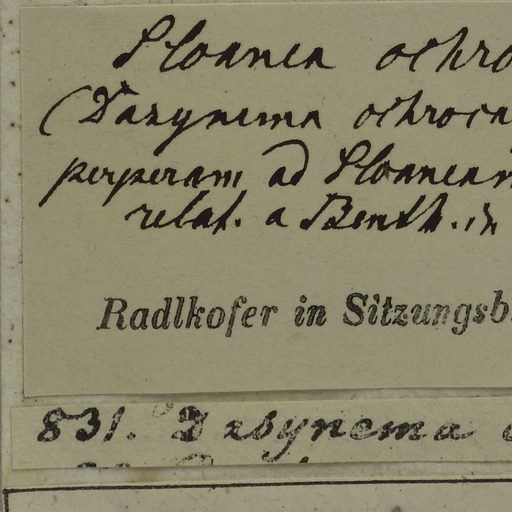 Sloanea ochro
(Dasynema ochroca
perperam ad Sloaneam
relat. a Benth. in
Radlkofer in Sitzungsb
831. Dasynema